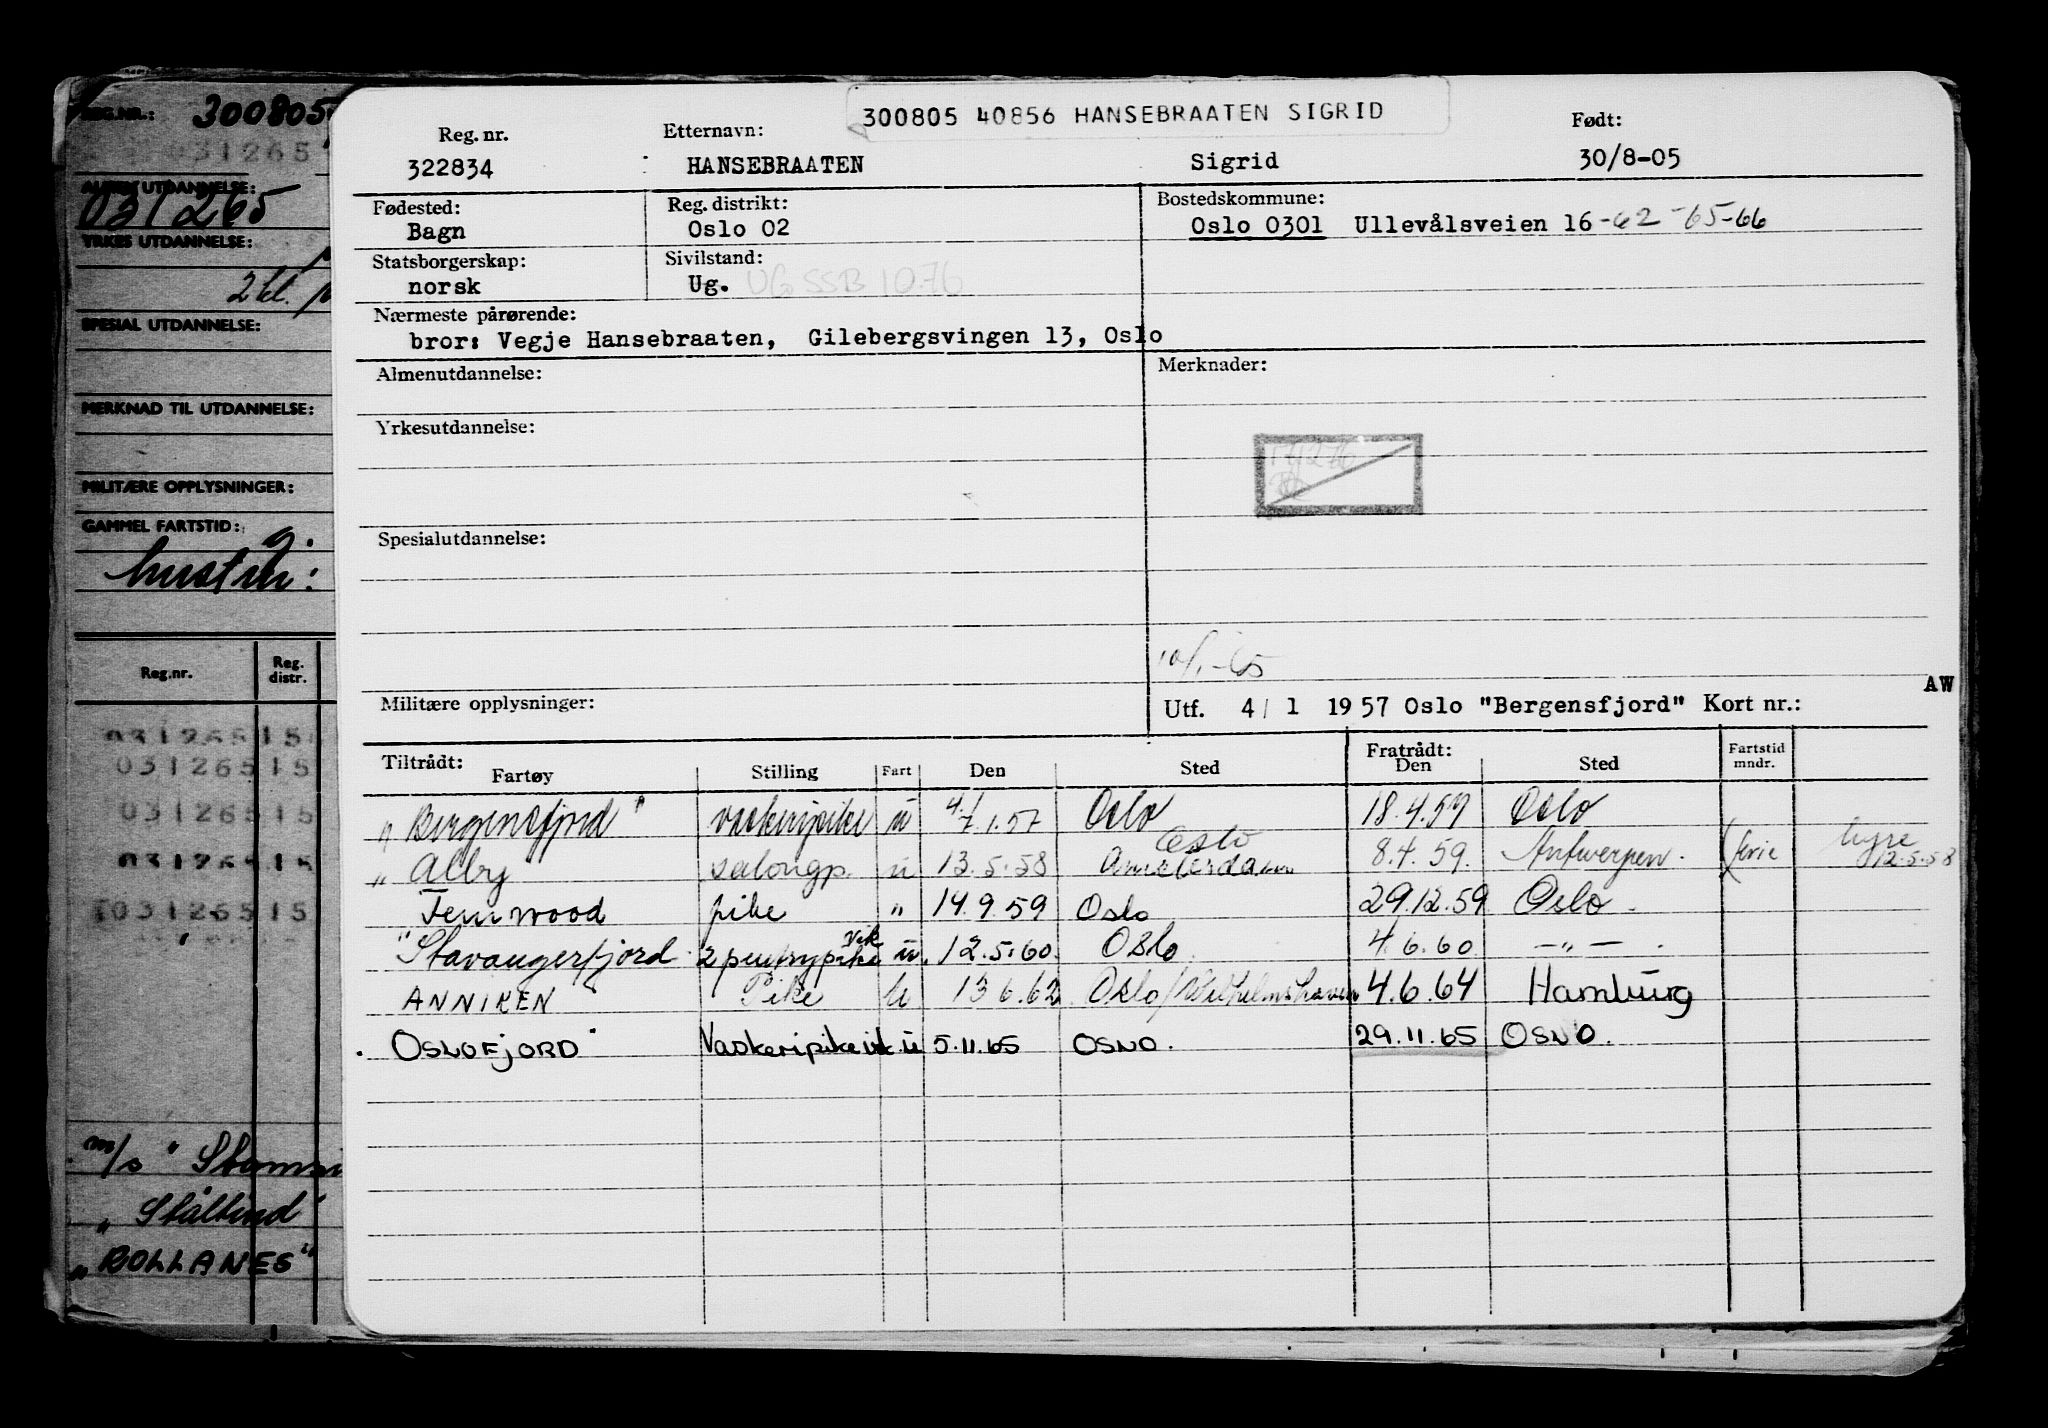 REG.NR.: 300805
031265
ALMEN UTDANNELSE:
031265
YRKES UTDANNELSE:
2 kl.
SPESIAL UTDANNELSE:
MERKNAD TIL UTDANNELSE:
MILITÆRE OPPLYSNINGER:
GAMMEL FARTSTID:
Reg.nr. Reg. distr.
031265 15
031265 15
031265 15
031265 15
031265 15
m/s "
„
„ ROLLANES"
300805 40856 HANSEBRAATEN SIGRID
Reg. nr. Etternavn: Født:
322834 HANSEBRAATEN Sigrid 30/8-05
Fødested: Reg. distrikt: Bostedskommune:
Bagn Oslo 02 Oslo 0301 Ullevålsveien 16-62-65-66
Statsborgerskap: Sivilstand:
norsk Ug. UG SSB 10.76
Nærmeste pårørende:
bror: Vegje Hansebraaten, Gilebergsvingen 13, Oslo
Almenutdannelse: Merknader:
Yrkesutdannelse:
Spesialutdannelse:
10/1-65
AW
Militære opplysninger: Utf. 4/1 1957 Oslo "Bergensfjord" Kort nr.:
Tiltrådt: Fratrådt: Fartstid mndr.
Fartøy Stilling Fart Den Sted Den Sted
" Bergensfjord " vaskeripike u 4/ 7.1.57 Oslo 18.4.57 Oslo
„ Alby salongp. u 13.5.58 Oslo Amsterdam 8.4.59. Antwerpen. (ferie hyre 12.5.58
" Fernwood pike " 14.9.59 Oslo 29.12.59 Oslo
"Stavangerfjord 2 pentrypike vik u. 12.5.60. Oslo. 4.6.60 -"-
ANNIKEN Pike u 13 6.62 Oslo/Wilhelmshaven 4.6.64 Hamburg
OSLOFJORD Vaskeripike vik u 5.11.65 OSLO. 29.11.65 OSLO.